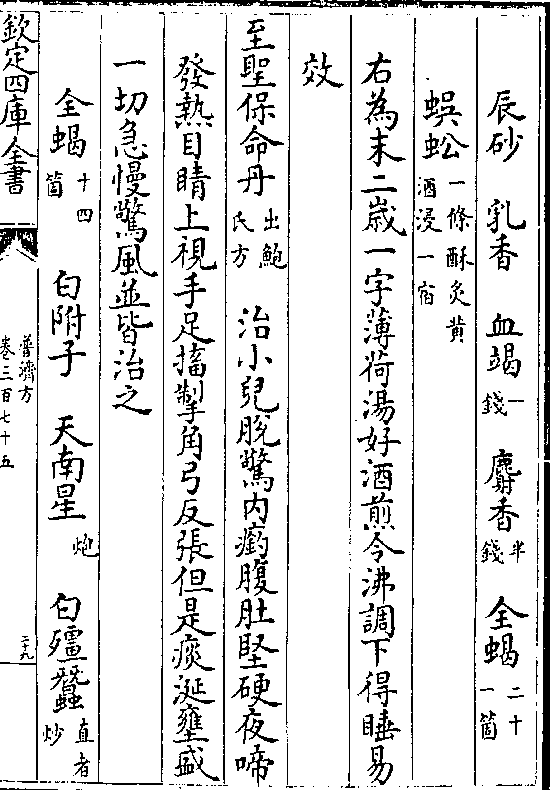 辰砂 乳香 血竭一錢 麝香半錢 全蝎二十一箇
蜈蚣一條酥炙黄酒浸一宿
右為末二歳一字薄荷湯好酒煎令沸調下得睡易
效
至聖保命丹出鮑氏方 治小兒胎驚内瘹腹肚堅硬夜啼
發熱目睛上視手足搐掣角弓反張但是痰涎壅盛
一切急慢驚風並皆治之
全蝎十四箇 白附子 天南星炮 白殭蠶直者炒
欽定四庫全書
普濟方
卷三百七十五
二十九